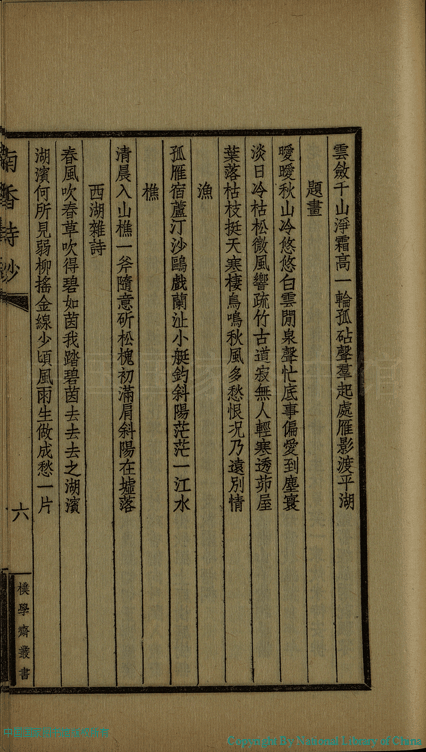 雲斂千山淨霜高一輪孤砧聲羣起處雁影渡平湖
題畫
曖曖秋山冷悠悠白雲閒泉聲忙底事偏愛到塵寰
淡日冷枯松微風響疏竹古道寂無人輕寒透茆屋
葉落枯枝挺天寒棲鳥鳴秋風多愁恨況乃遠別情
漁
孤雁宿蘆汀沙鷗戲蘭沚小艇釣斜陽茫茫一江水
樵
清晨入山樵一斧隨意斫松槐初滿肩斜陽在墟落
西湖雜詩
春風吹春草吹得碧如茵我踏碧茵去去去之湖濱
湖濱何所見弱柳搖金線少頃風雨生做成愁一片
香詩鈔
六
樸學齋叢書
Copyright By National Library of China